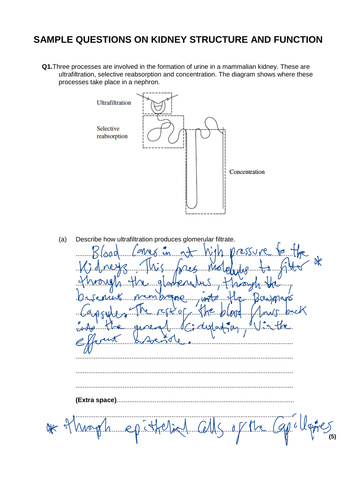 SAMPLE QUESTIONS ON KIDNEY STRUCTURE AND FUNCTION
Q1.Three processes are involved in the formation of urine in a mammalian kidney. These are
ultrafiltration, selective reabsorption and concentration. The diagram shows where these
processes take place in a nephron.
Ultrafiltration
Selective
reabsorption
Concentration
(a) Describe how ultrafiltration produces glomerular filtrate.
Blood comes in at high pressure to the
Kidneys. This forces molecules to filter *
through the , through the
basement membrane, into the Bowmans
Capsule. The rest of the blood flows back
into the general circulation, via the
efferent arteriole.
(Extra space)
* through epithelial cells of the capillaries
(5)